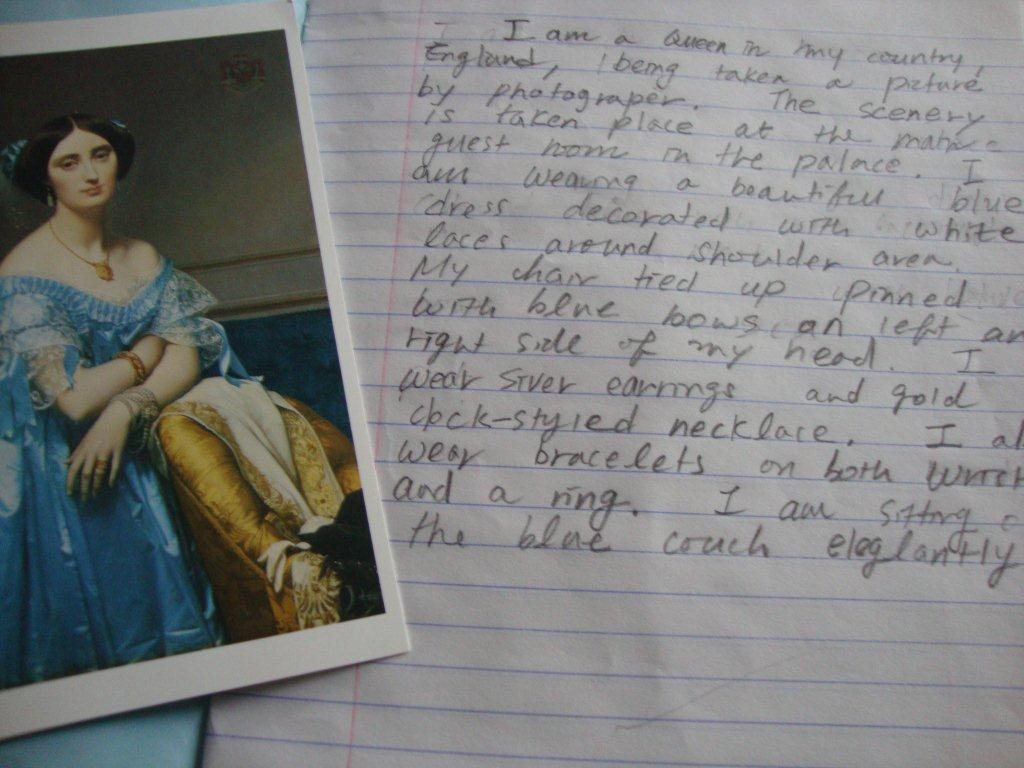 I am a Queen in my country,
England, being taken a picture
by photograper. The scenery
is taken place at the
guest room in the palace. I
am wearing a beautiful blue
dress decorated with white
laces around shoulder area.
My hair tied up pinned
with blue bows, an left an
right side of my head. I
wear siver earrings and gold
clock-styled necklace. I al
wear bracelets on both wrich
and a ring. I am sitting o
the blue couch eleglantly